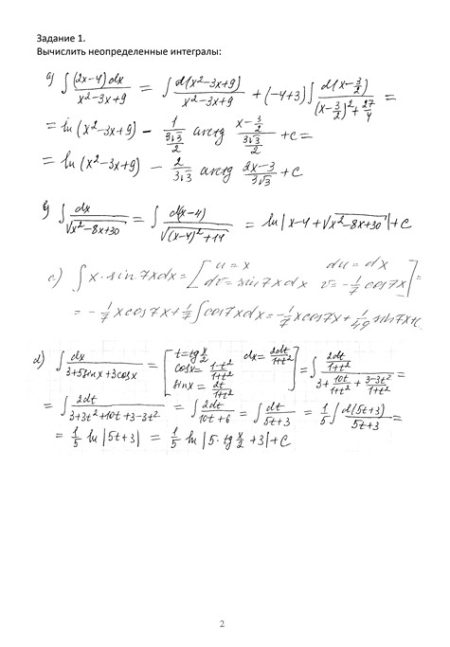 Задание 1.
Вычислить неопределенные интегралы:
a) ∫ (2x-4)dx / (x²-3x+9) = ∫ d(x²-3x+9) / (x²-3x+9) + (-4+3) ∫ d(x-3/2) / ((x-3/2)²+27/4) =
= ln(x²-3x+9) - 1/(3√3/2) arctg (x-3/2)/(3√3/2) + C =
= ln(x²-3x+9) - 2/(3√3) arctg (2x-3)/(3√3) + C
b) ∫ dx/√(x²-8x+30) = ∫ d(x-4)/√((x-4)²+14) = ln|x-4+√(x²-8x+30)|+C
c) ∫ x·sin7xdx = [u=x du=dx dv=sin7xdx v=-1/7 cos7x] =
= -1/7 xcos7x + 1/7 ∫cos7xdx = -1/7 xcos7x + 1/49 sin7x+C
d) ∫ dx/(3+5sinx+3cosx) = [t=tg x/2 dx=2dt/(1+t²) cosx=(1-t²)/(1+t²) sinx=2t/(1+t²)] = ∫ (2dt/(1+t²)) / (3+10t/(1+t²)+(3-3t²)/(1+t²)) =
= ∫ 2dt/(3+3t²+10t+3-3t²) = ∫ 2dt/(10t+6) = ∫ dt/(5t+3) = 1/5 ∫ d(5t+3)/(5t+3) =
= 1/5 ln|5t+3| = 1/5 ln|5·tg x/2 +3|+C
2